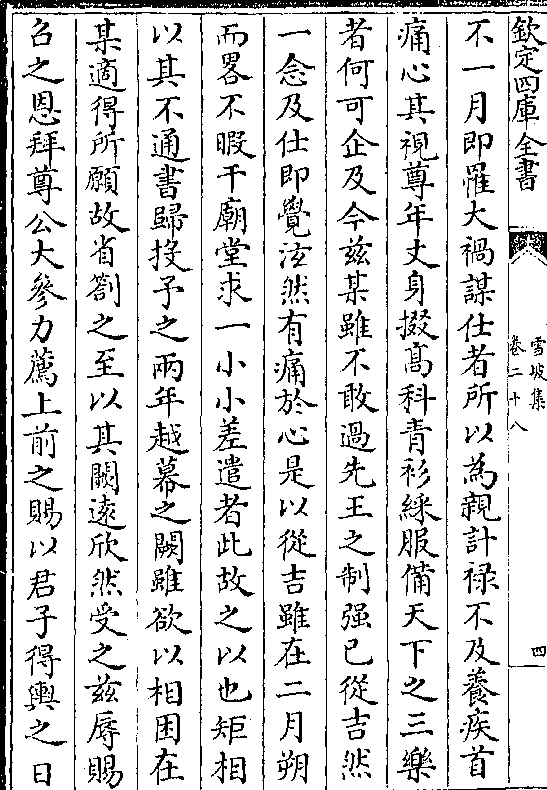 欽定四庫全書
雪坡集
卷二十八
四
不一月即罹大禍謀仕者所以為親計祿不及養疾首
痛心其視尊年丈身掇髙科青衫綵服備天下之三樂
者何可企及今兹某雖不敢過先王之制强已從吉然
一念及仕即覺泫然有痛於心是以從吉雖在二月朔
而畧不暇干廟堂求一小小差遣者此故之以也矩相
以其不通書歸投予之兩年越幕之闕雖欲以相困在
某適得所願故省劄之至以其闕逺欣然受之兹辱賜
召之恩拜尊公大參力薦上前之賜以君子得輿之日